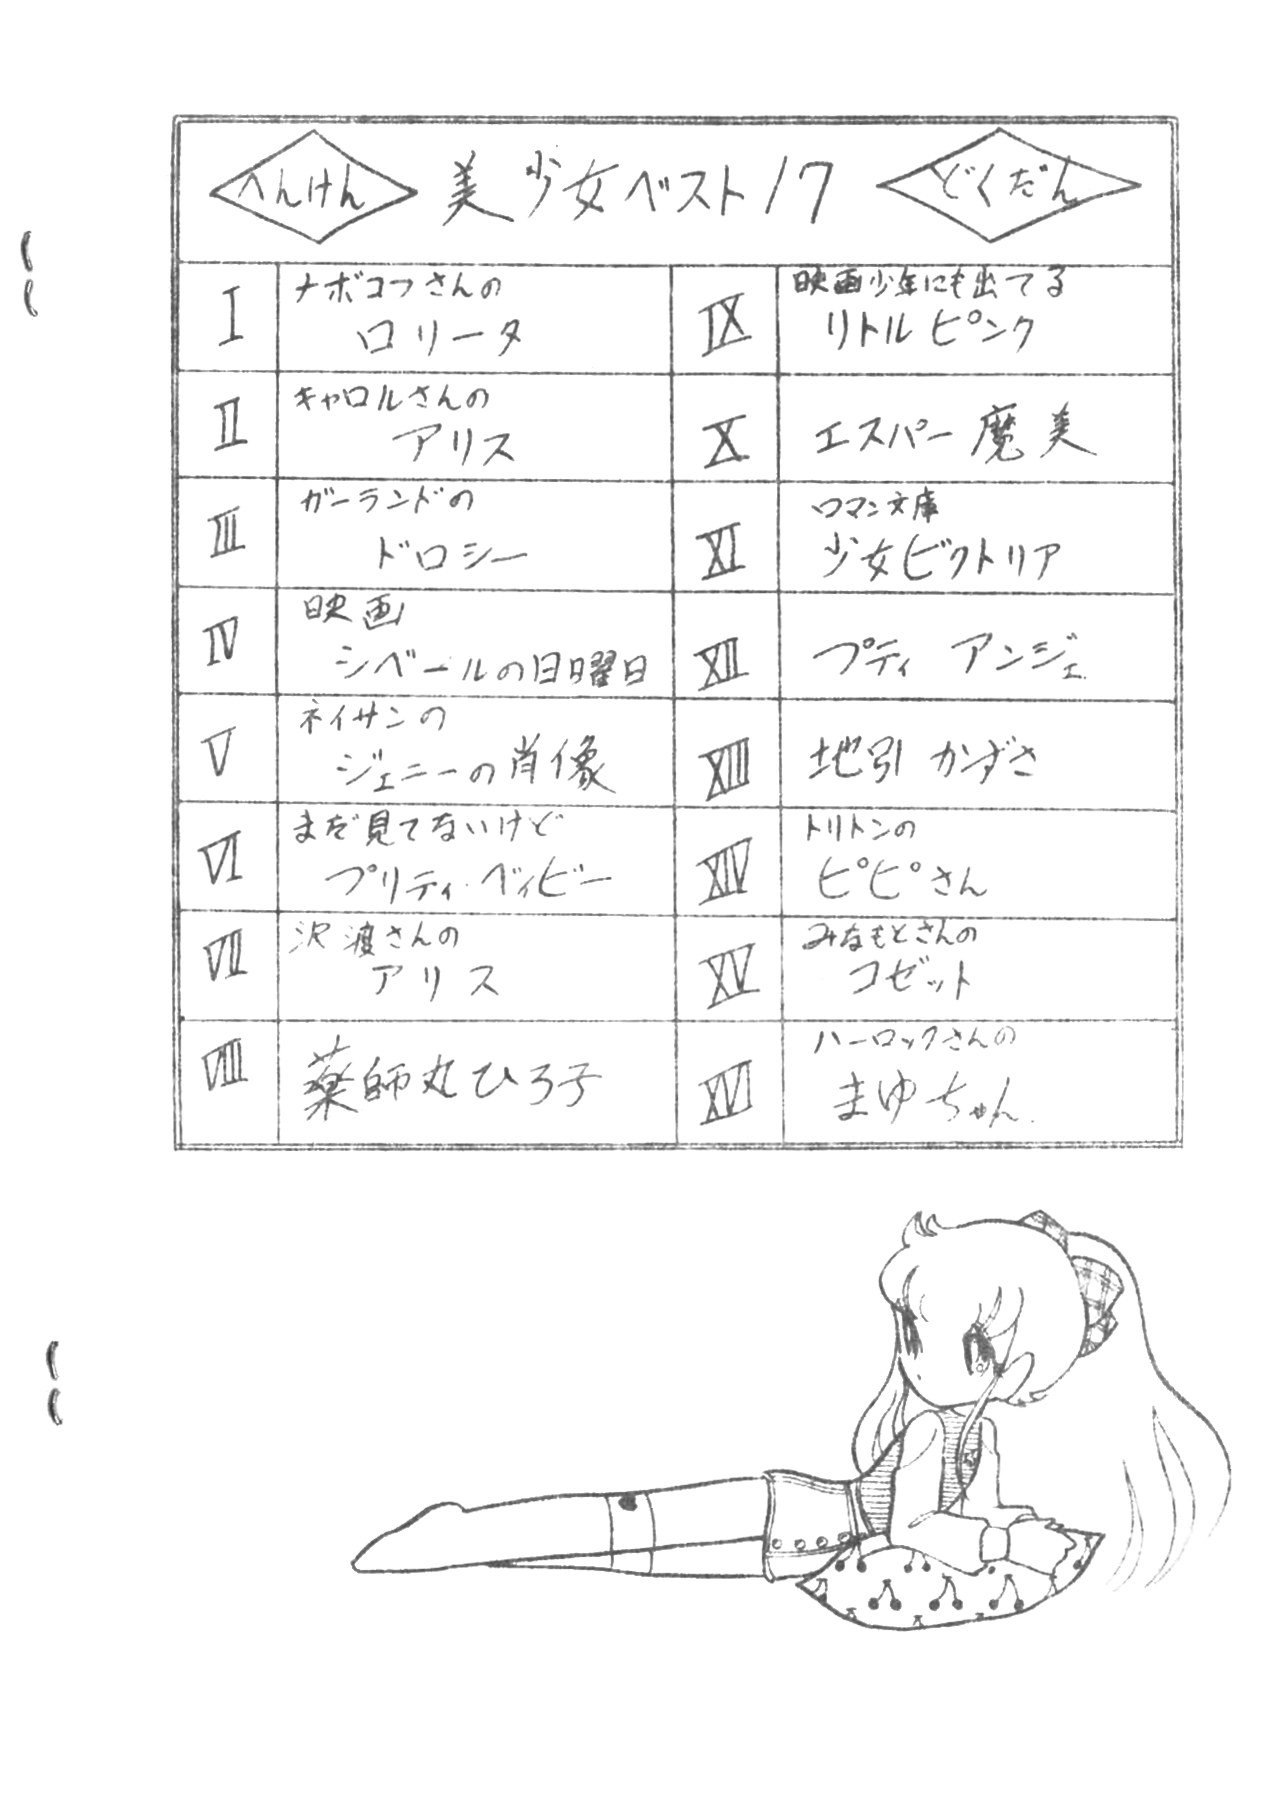 へんけん 美少女ベスト17 どくだん
I
ナボコフさんの
ロリータ
II
キャロルさんの
アリス
III
ガーランドの
ドロシー
IV
映画
シベールの日曜日
V
ネイサンの
ジェニーの肖像
VI
まだ見てないけど
プリティ・ベイビー
VII
沢渡さんの
アリス
VIII
薬師丸ひろ子
IX
映画少年にも出てる
リトルピンク
X
エスパー魔美
XI
ロマン文庫
少女ビクトリア
XII
プティ アンジェ
XIII
地引かずさ
XIV
トリトンの
ピピさん
XV
みなもとさんの
コゼット
XVI
ハーロックさんの
まゆちゃん.